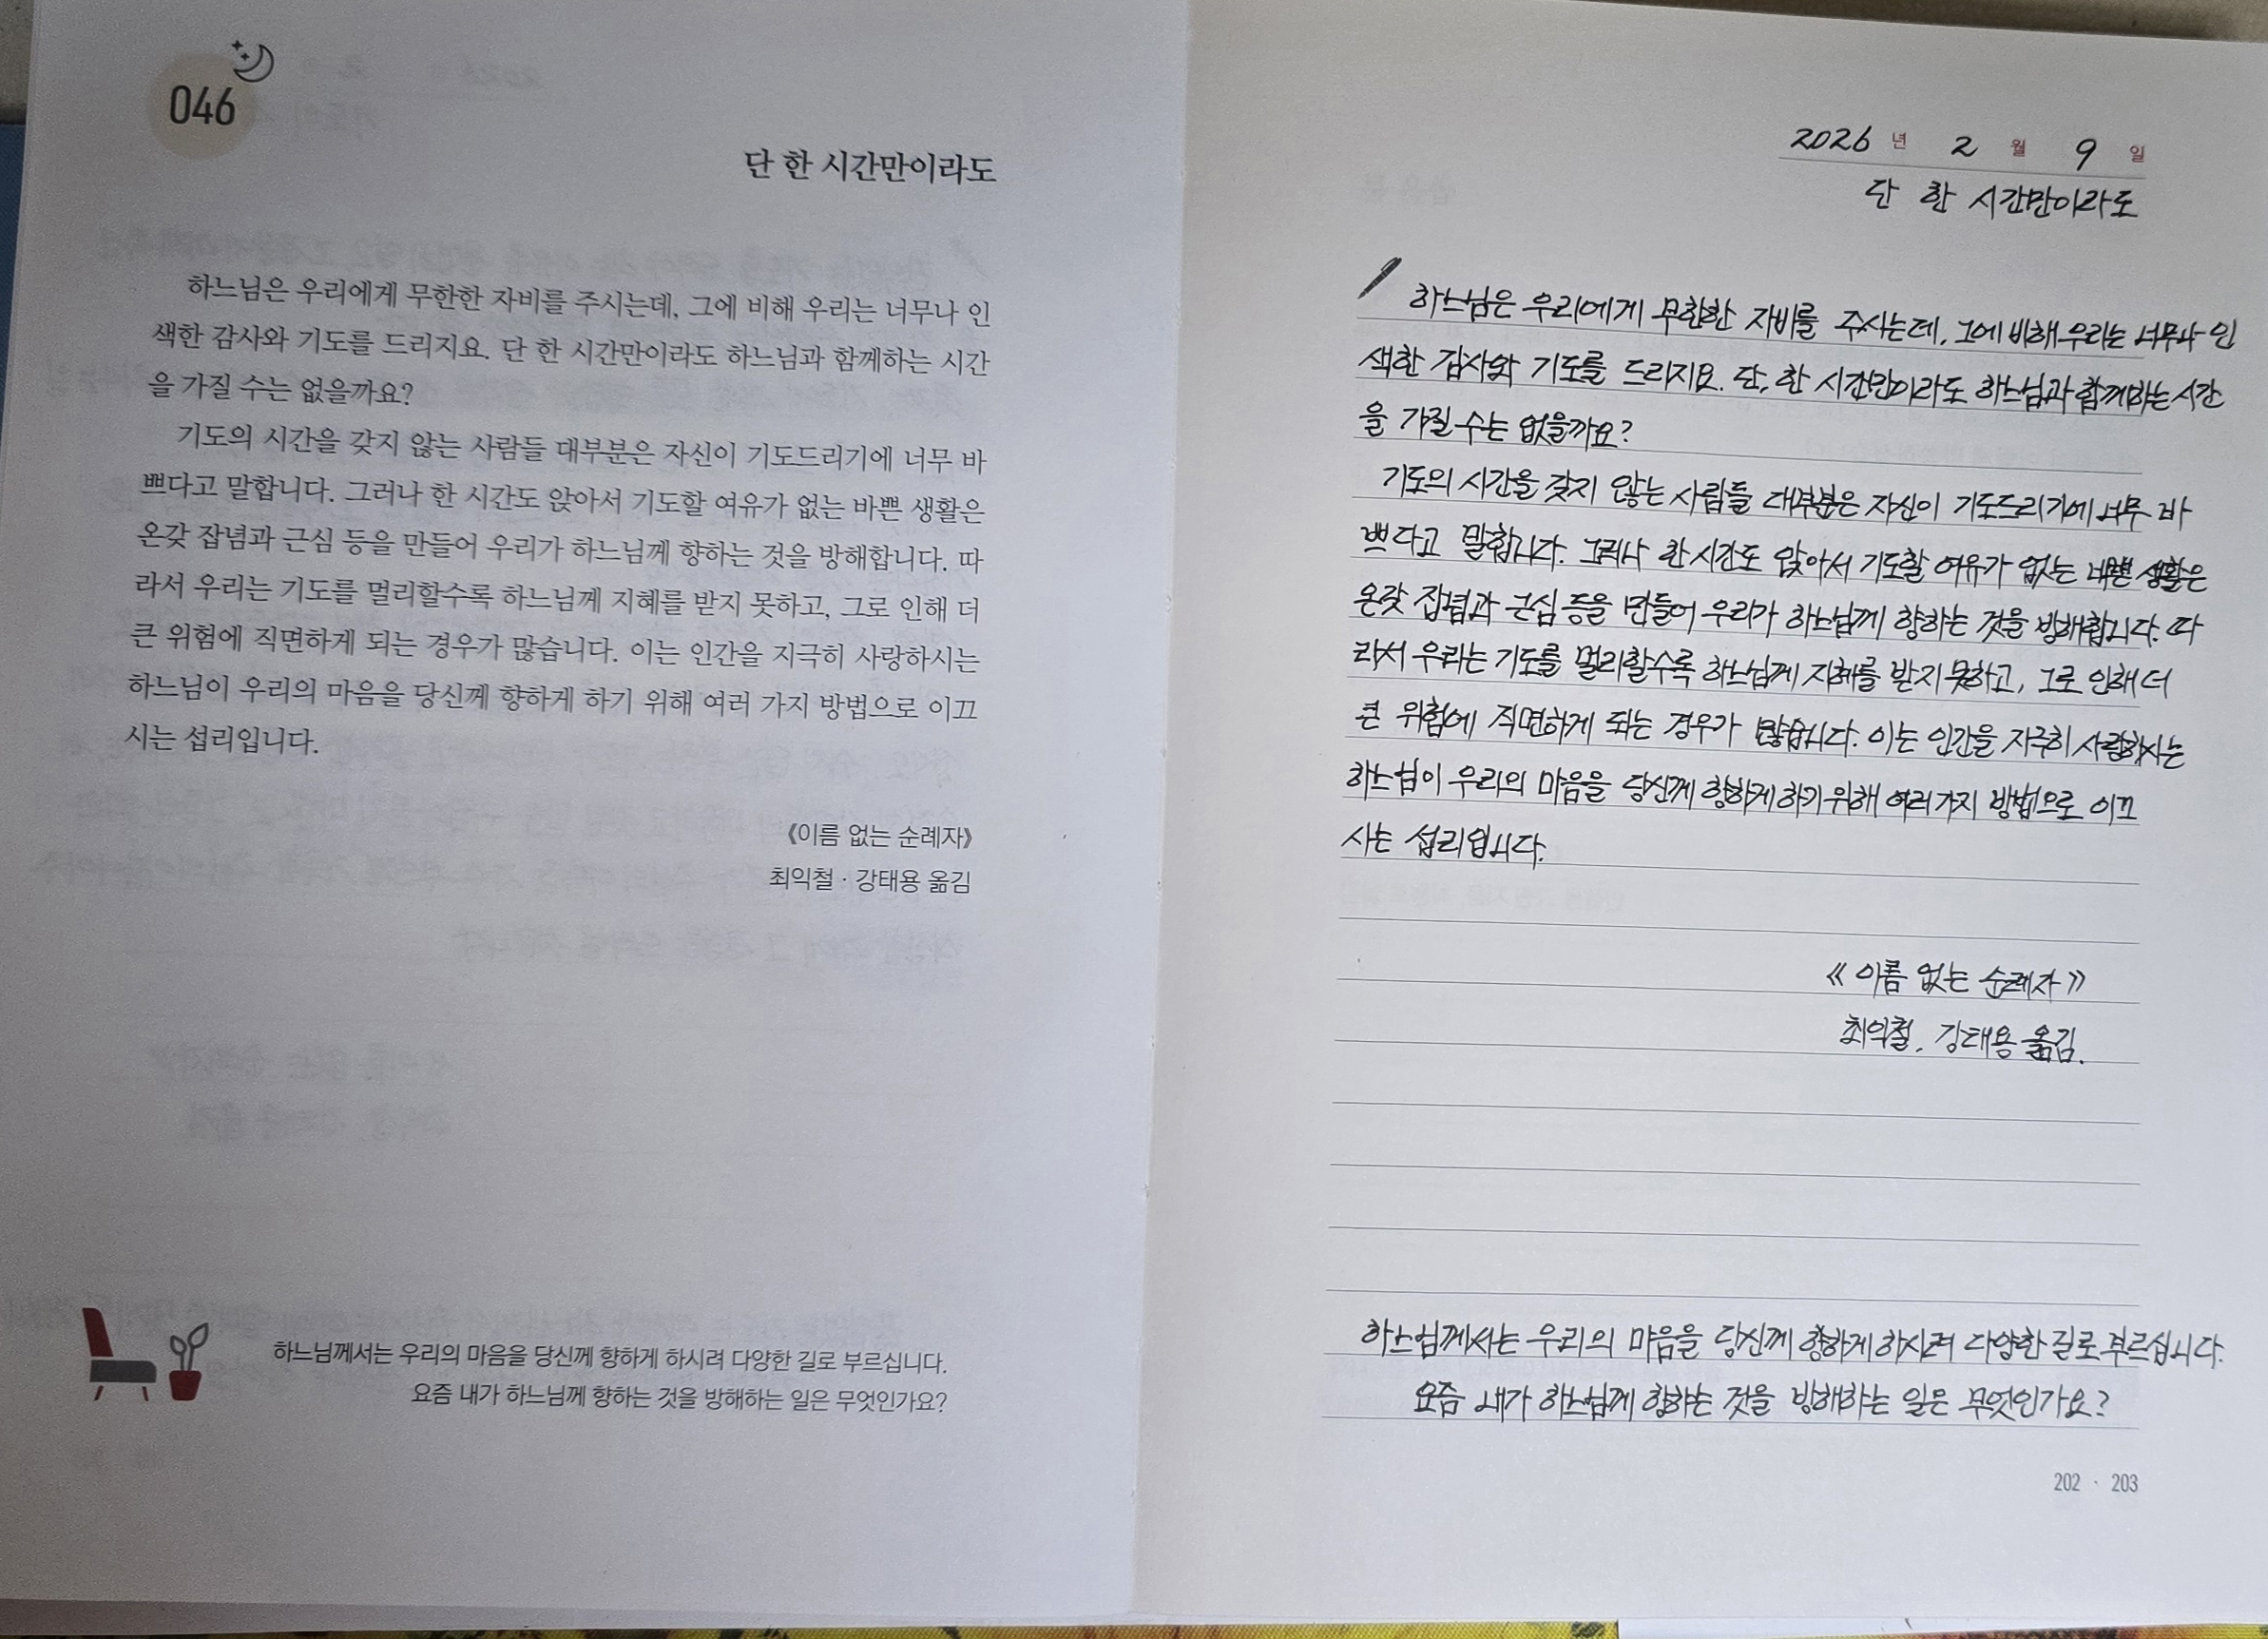 046
단 한 시간만이라도
하느님은 우리에게 무한한 자비를 주시는데, 그에 비해 우리는 너무나 인
색한 감사와 기도를 드리지요. 단 한 시간만이라도 하느님과 함께하는 시간
을 가질 수는 없을까요?
기도의 시간을 갖지 않는 사람들 대부분은 자신이 기도드리기에 너무 바
쁘다고 말합니다. 그러나 한 시간도 앉아서 기도할 여유가 없는 바쁜 생활은
온갖 잡념과 근심 등을 만들어 우리가 하느님께 향하는 것을 방해합니다. 따
라서 우리는 기도를 멀리할수록 하느님께 지혜를 받지 못하고, 그로 인해 더
큰 위험에 직면하게 되는 경우가 많습니다. 이는 인간을 지극히 사랑하시는
하느님이 우리의 마음을 당신께 향하게 하기 위해 여러 가지 방법으로 이끄
시는 섭리입니다.
《이름 없는 순례자》
최익철 · 강태용 옮김
하느님께서는 우리의 마음을 당신께 향하게 하시려 다양한 길로 부르십니다.
요즘 내가 하느님께 향하는 것을 방해하는 일은 무엇인가요?
2026 년 2 월 9 일
단 한 시간만이라도
하느님은 우리에게 무한한 자비를 주시는데, 그에 비해 우리는 너무나 인
색한 감사와 기도를 드리지요. 단, 한 시간만이라도 하느님과 함께하는 시간
을 가질 수는 없을까요?
기도의 시간을 갖지 않는 사람들 대부분은 자신이 기도드리기에 너무 바
쁘다고 말합니다. 그러나 한 시간도 앉아서 기도할 여유가 없는 바쁜 생활은
온갖 잡념과 근심 등을 만들어 우리가 하느님께 향하는 것을 방해합니다. 따
라서 우리는 기도를 멀리할수록 하느님께 지혜를 받지 못하고, 그로 인해 더
큰 위험에 직면하게 되는 경우가 많습니다. 이는 인간을 지극히 사랑하시는
하느님이 우리의 마음을 당신께 향하게 하기 위해 여러 가지 방법으로 이끄
시는 섭리입니다.
《이름 없는 순례자》
최익철, 강태용 옮김.
하느님께서는 우리의 마음을 당신께 향하게 하시려 다양한 길로 부르십니다.
요즘 내가 하느님께 향하는 것을 방해하는 일은 무엇인가요?
202 · 203